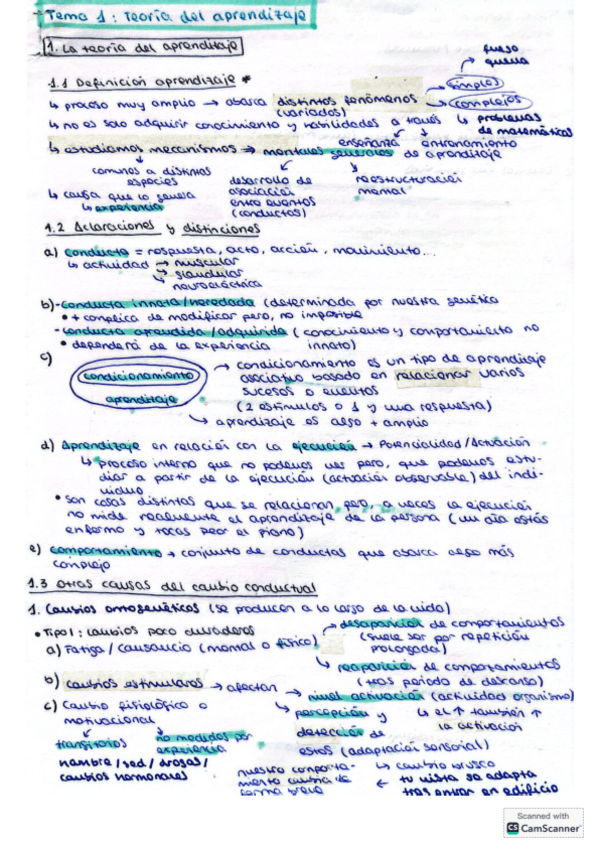 Tema 1: Teoría del aprendizaje
1. La teoría del aprendizaje
1.1 Definición aprendizaje *
fuego
quema
simples
↳ proceso muy amplio → abarca distintos fenómenos
complejos
(variados)
↳ no es solo adquirir conocimiento y habilidades a través
↳ problemas
de matemáticas
enseñanza entrenamiento
↳ estudiamos mecanismos → mentales generales de aprendizaje
comunes a distintas
especies
desarrollo de
asociación
entre eventos
(conductas)
reestructuración
mental
↳ causa que lo genera
↳ experiencia
1.2 Aclaraciones y distinciones
a) Conducta = respuesta, acto, acción, movimiento...
↳ actividad → muscular
→ glandular
→ neuroeléctrica
b) - conducta innata/heredada (determinada por nuestra genética
• + complica de modificar pero, no imposible
- conducta aprendida/adquirida (conocimiento y comportamiento no
• dependerá de la experiencia innato)
c)
condicionamiento
aprendizaje
→ condicionamiento es un tipo de aprendizaje
asociativo basado en relacionar varios
sucesos o eventos
(2 estímulos o 1 y una respuesta)
→ aprendizaje es algo + amplio
d) Aprendizaje en relación con la ejecución → Potencialidad/Actuación
↳ proceso interno que no podemos ver pero, que podemos estu-
diar a partir de la ejecución (actuación observable) del indi-
viduo
• son cosas distintas que se relacionan, pero, a veces la ejecución
no mide realmente el aprendizaje de la persona (un día estás
enfermo y tocas peor el piano)
e) comportamiento → conjunto de conductas que abarca algo más
complejo
1.3 Otras causas del cambio conductual
1. Cambios ontogenéticos (se producen a lo largo de la vida)
• Tipo 1: cambios poco duraderos
→ desaparición de comportamientos
(suele ser por repetición
prolongada)
a) Fatiga / Cansancio (mental o físico)
↳ reaparición de comportamientos
(tras periodo de descanso)
b) cambios estimulares → afectan → nivel activación (actividad organismo)
↳ el ↑ también ↑
la activación
→ percepción y
detección de
estos (adaptación sensorial)
c) Cambio fisiológico o
motivacional
transitorios
hambre / sed / drogas /
cambios hormonales
no mediados por
experiencia
nuestro comporta-
miento cambia de
forma breve
↳ cambio brusco
← tu vista se adapta
tras entrar en edificio
Scanned with
CS CamScanner